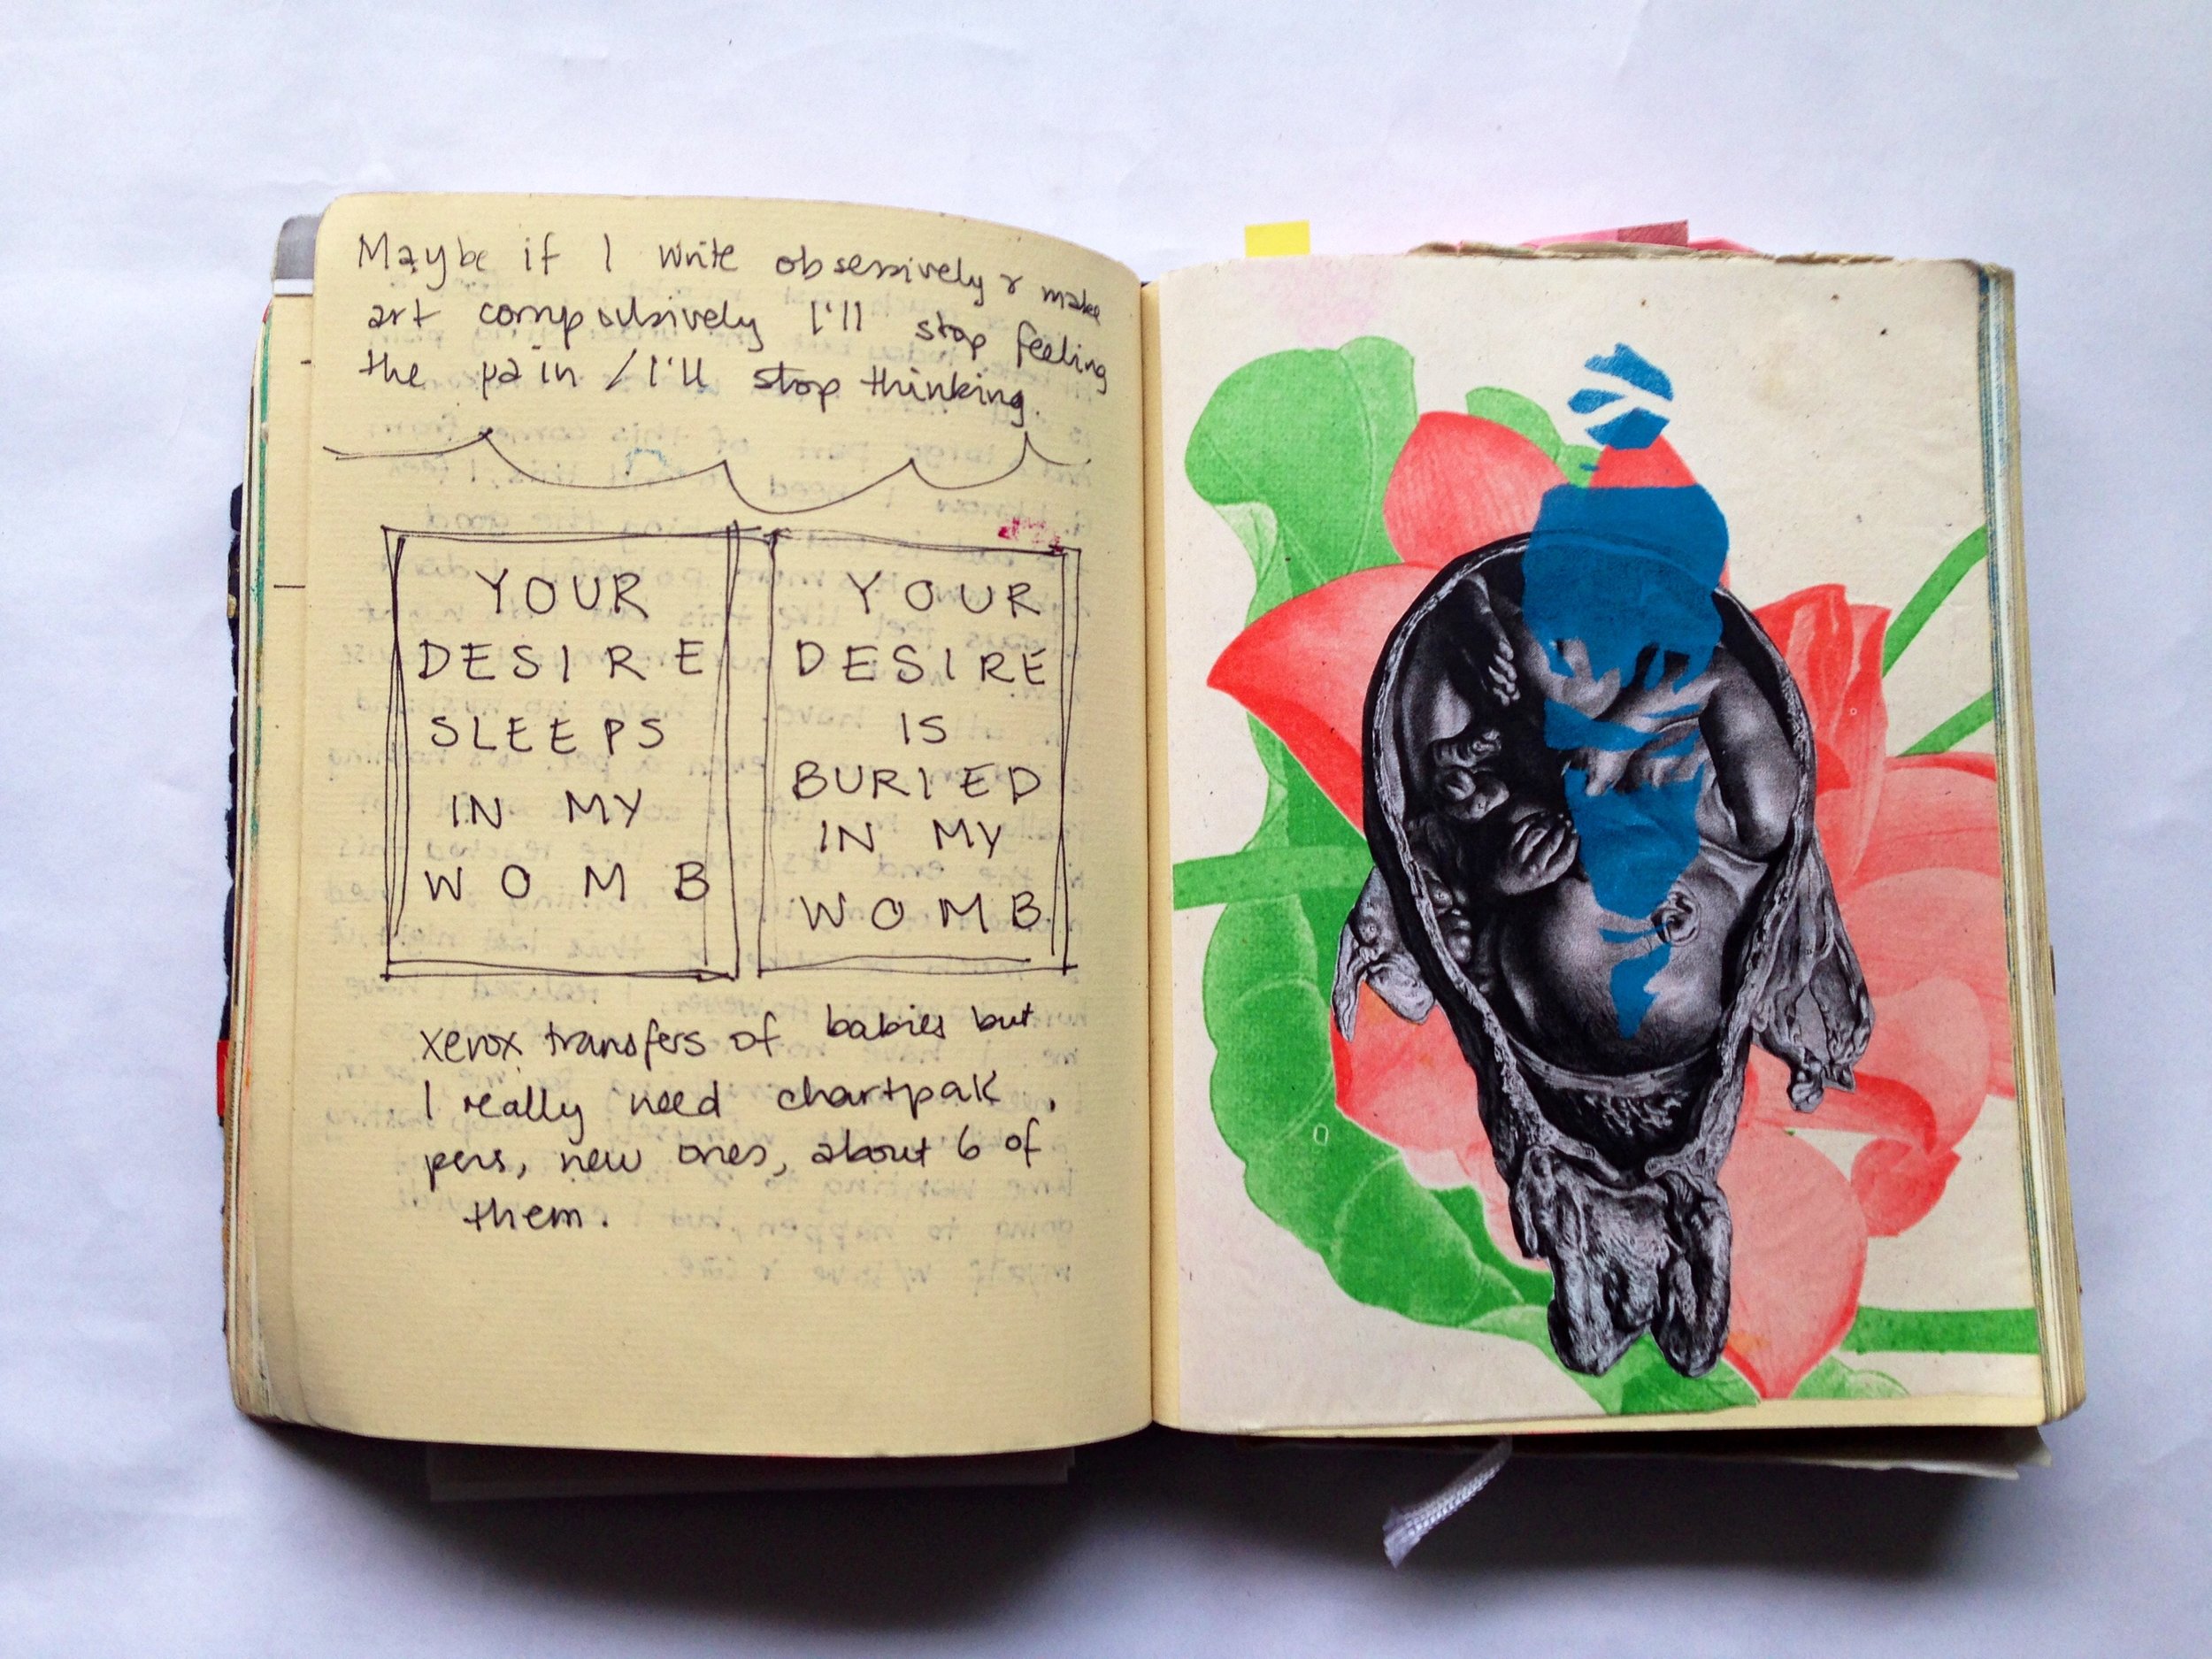 Maybe if I write obsessively & make
art compulsively I'll stop feeling
the pain / I'll stop thinking.
YOUR
DESIRE
SLEEPS
IN MY
WOMB
YOUR
DESIRE
IS
BURIED
IN MY
WOMB.
xerox transfers of babies but
I really need chartpak
pens, new ones, about 6 of
them.